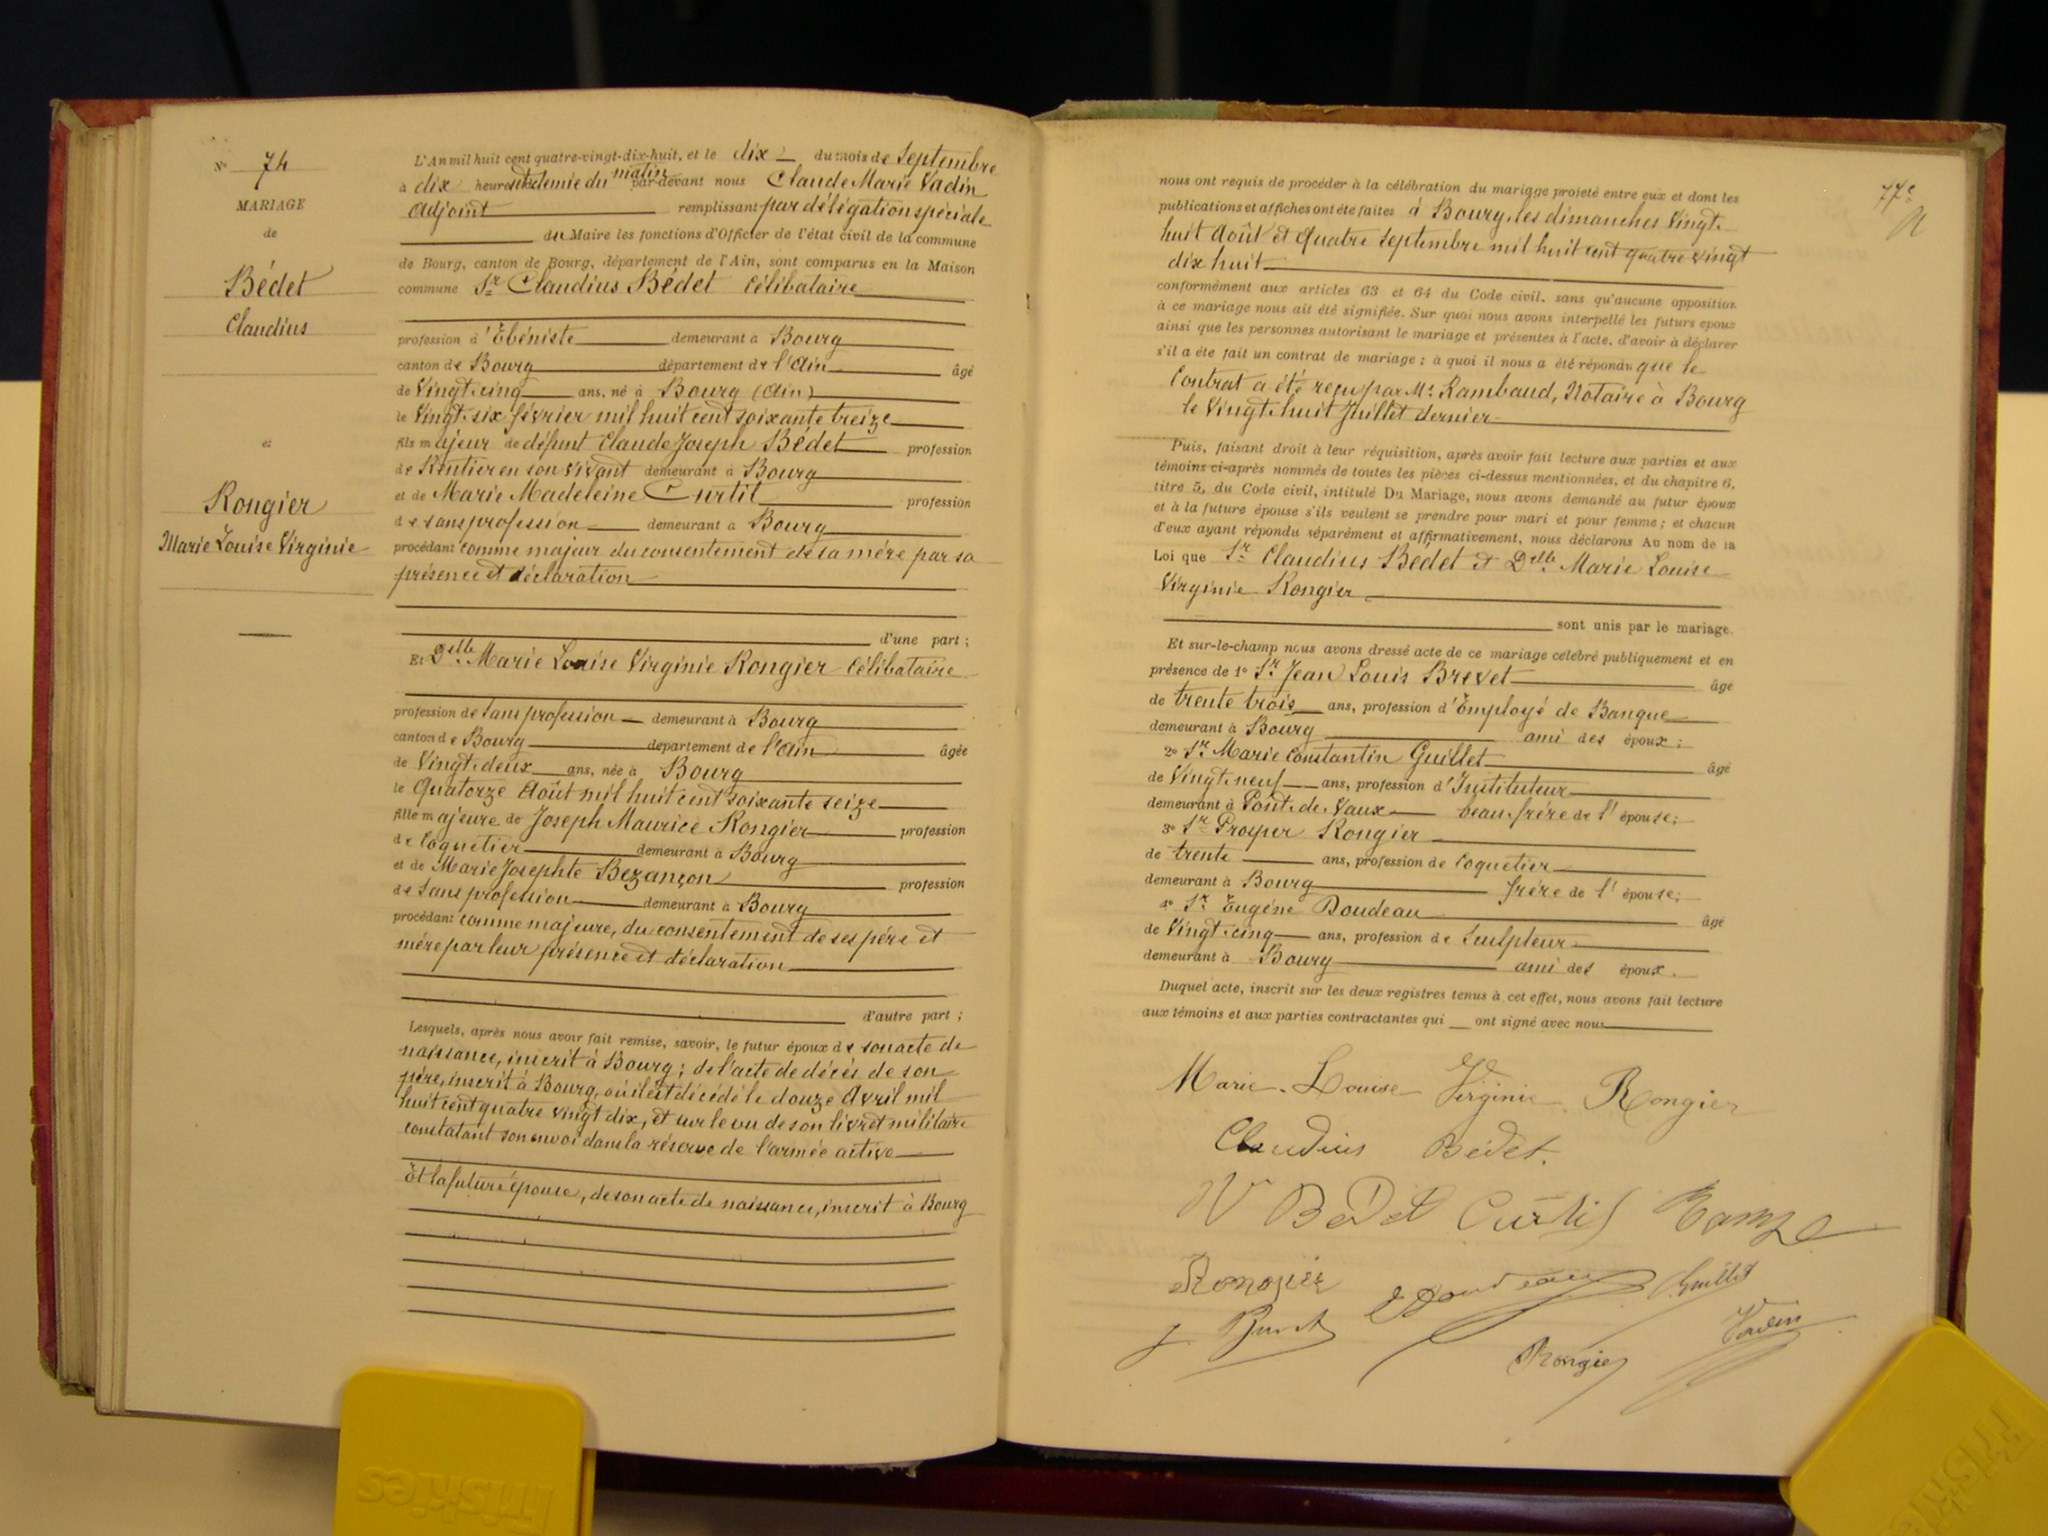 N° 74
MARIAGE
de
Bédet
Claudius
et
Rongier
Marie Louise Virginie
L'An mil huit cent quatre-vingt-dix-huit, et le dix du mois de Septembre
à dix heures et demie du matin par-devant nous Claude Marie Vadin
Adjoint remplissant par délégation spéciale
du Maire les fonctions d'Officier de l'état civil de la commune
de Bourg, canton de Bourg, département de l'Ain, sont comparus en la Maison
commune Sr Claudius Bédet Célibataire
profession d'Ebéniste demeurant à Bourg
canton de Bourg département de l'Ain âgé
de Vingt-cinq ans, né à Bourg (Ain)
le Vingt-six février mil huit cent soixante treize
fils majeur de défunt Claude Joseph Bédet profession
de Rentier en son vivant demeurant à Bourg
et de Marie Madeleine Curtil profession
de sans profession demeurant à Bourg
procédant comme majeur du consentement de sa mère par sa
présence et déclaration
d'une part ;
Et Delle Marie Louise Virginie Rongier Célibataire
profession de sans profession demeurant à Bourg
canton de Bourg département de l'Ain âgée
de Vingt-deux ans, née à Bourg
le Quatorze Août mil huit cent soixante seize
fille majeure de Joseph Maurice Rongier profession
de Coquetier demeurant à Bourg
et de Marie Josephte Bezançon profession
de sans profession demeurant à Bourg
procédant comme majeure, du consentement de ses père et
mère par leur présence et déclaration
d'autre part ;
Lesquels, après nous avoir fait remise, savoir, le futur époux de son acte de
naissance, inscrit à Bourg ; de l'acte de décès de son
père, inscrit à Bourg, où il est décédé le douze Avril mil
huit cent quatre vingt dix, et sur le vu de son livret militaire
constatant son envoi dans la réserve de l'armée active
Et la future épouse, de son acte de naissance, inscrit à Bourg
77e
nous ont requis de procéder à la célébration du mariage projeté entre eux et dont les
publications et affiches ont été faites à Bourg, les dimanches Vingt-
huit Août et Quatre Septembre mil huit cent quatre vingt
dix huit
conformément aux articles 63 et 64 du Code civil, sans qu'aucune opposition
à ce mariage nous ait été signifiée. Sur quoi nous avons interpellé les futurs époux
ainsi que les personnes autorisant le mariage et présentes à l'acte, d'avoir à déclarer
s'il a été fait un contrat de mariage ; à quoi il nous a été répondu que le
Contrat a été reçu par Me Rambaud, Notaire à Bourg
le Vingt-huit Juillet dernier
Puis, faisant droit à leur réquisition, après avoir fait lecture aux parties et aux
témoins ci-après nommés de toutes les pièces ci-dessus mentionnées, et du chapitre 6,
titre 5, du Code civil, intitulé Du Mariage, nous avons demandé au futur époux
et à la future épouse s'ils veulent se prendre pour mari et pour femme ; et chacun
d'eux ayant répondu séparément et affirmativement, nous déclarons Au nom de la
Loi que Sr Claudius Bédet et Delle Marie Louise
Virginie Rongier
sont unis par le mariage.
Et sur-le-champ nous avons dressé acte de ce mariage célébré publiquement et en
présence de 1° Sr Jean Louis Brevet âgé
de trente trois ans, profession d'Employé de Banque
demeurant à Bourg ami des époux ;
2° Sr Marie Constantin Guillet âgé
de Vingt-neuf ans, profession d'Instituteur
demeurant à Pont-de-Vaux beau-frère de l'épouse ;
3° Sr Prosper Rongier
de trente ans, profession de Coquetier
demeurant à Bourg frère de l'épouse ;
4° Sr Eugène Doudeau âgé
de Vingt-cinq ans, profession de Sculpteur
demeurant à Bourg ami des époux.
Duquel acte, inscrit sur les deux registres tenus à cet effet, nous avons fait lecture
aux témoins et aux parties contractantes qui ont signé avec nous
Marie-Louise Virginie Rongier
Claudius Bédet.
Vve Bedet Curtil
Rongier Doudeau Guillet
J Brevet Rongier Vadin
Friskies
Friskies